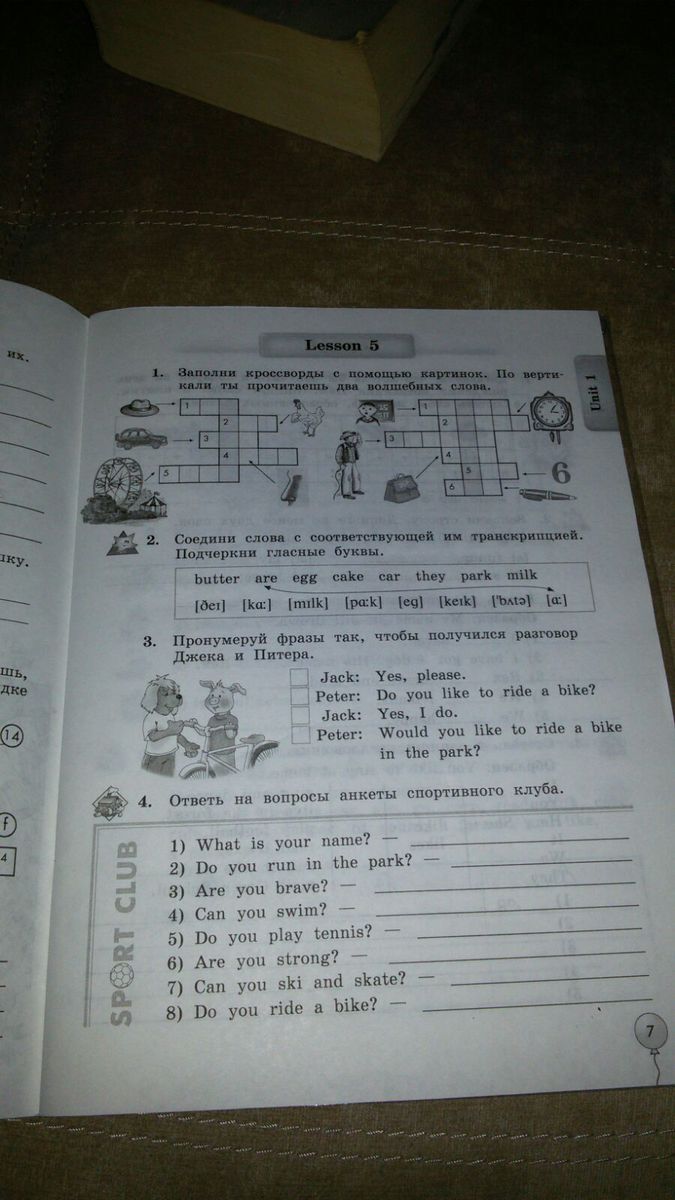 их.
Lesson 5
Unit 1
1. Заполни кроссворды с помощью картинок. По верти-
кали ты прочитаешь два волшебных слова.
1
2
3
4
5
1
2
3
4
5
6
6
2. Соедини слова с соответствующей им транскрипцией.
Подчеркни гласные буквы.
butter are egg cake car they park milk
[ðeɪ] [kɑː] [mɪlk] [pɑːk] [eg] [keɪk] [ˈbʌtə] [ɑː]
3. Пронумеруй фразы так, чтобы получился разговор
Джека и Питера.
Jack: Yes, please.
Peter: Do you like to ride a bike?
Jack: Yes, I do.
Peter: Would you like to ride a bike
in the park?
14
f
4
4. Ответь на вопросы анкеты спортивного клуба.
SPORT CLUB
1) What is your name? —
2) Do you run in the park? —
3) Are you brave? —
4) Can you swim? —
5) Do you play tennis? —
6) Are you strong? —
7) Can you ski and skate? —
8) Do you ride a bike? —
7